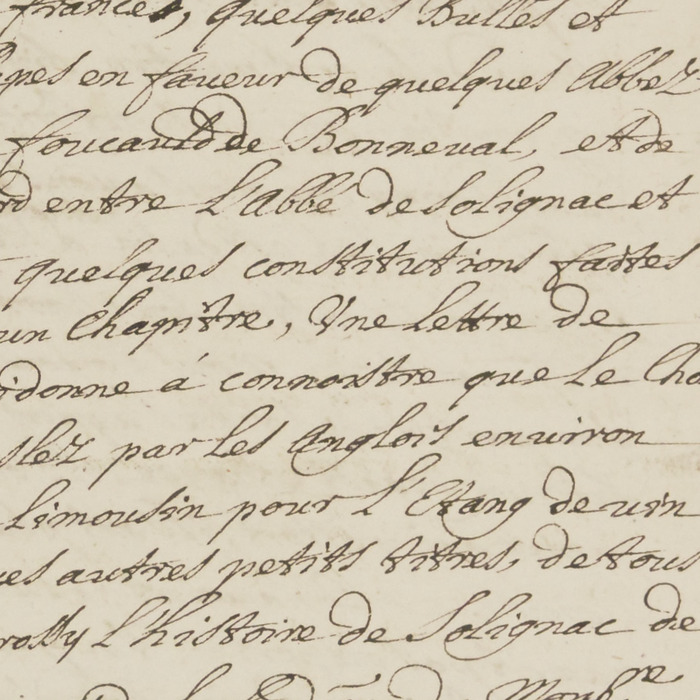 france, quelques Bulles et
en faveur de quelques Abbez
foucauld de Bonneval, et de
entre L'Abbé de Solignac et
quelques constitutions faites
un Chapitre, Une Lettre de
donne á connoistre que Le
par Les Anglois environ
Limousin pour L'Etang de vin
autres petits titres, de tous
L'histoire de Solignac de